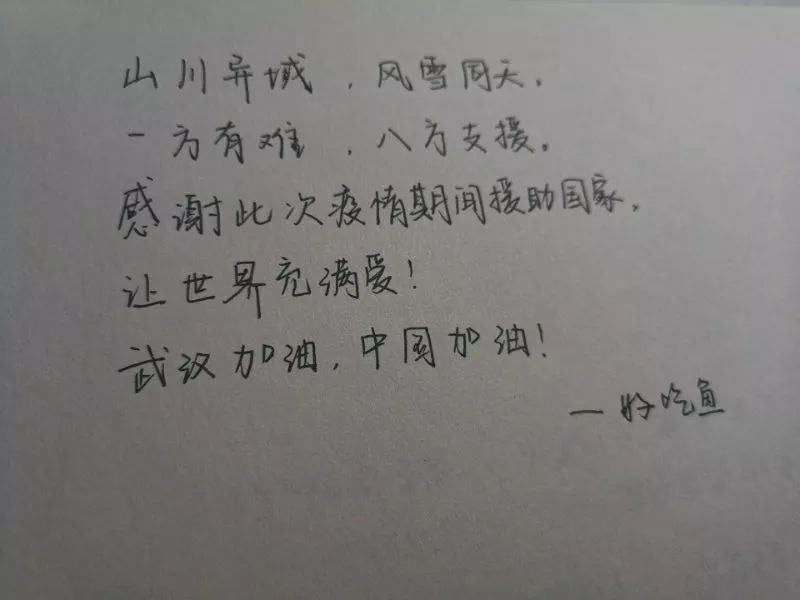 山川异域，风雪同天。
一方有难，八方支援。
感谢此次疫情期间援助国家。
让世界充满爱！
武汉加油，中国加油！
— 好吃鱼